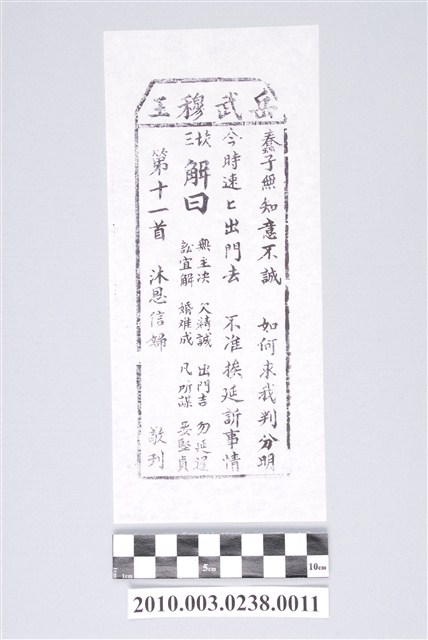 岳武穆王
蠢子無知意不誠 如何求我判分明
今時速〻出門去 不准挨延訴事情
坎三
解曰
無主决 欠禱誠 出門吉 勿延遲
訟宜解 婚难成 凡所謀 要堅貞
第十一首 沐恩信婦 敬刊
1cm 5cm 10cm
2010.003.0238.0011